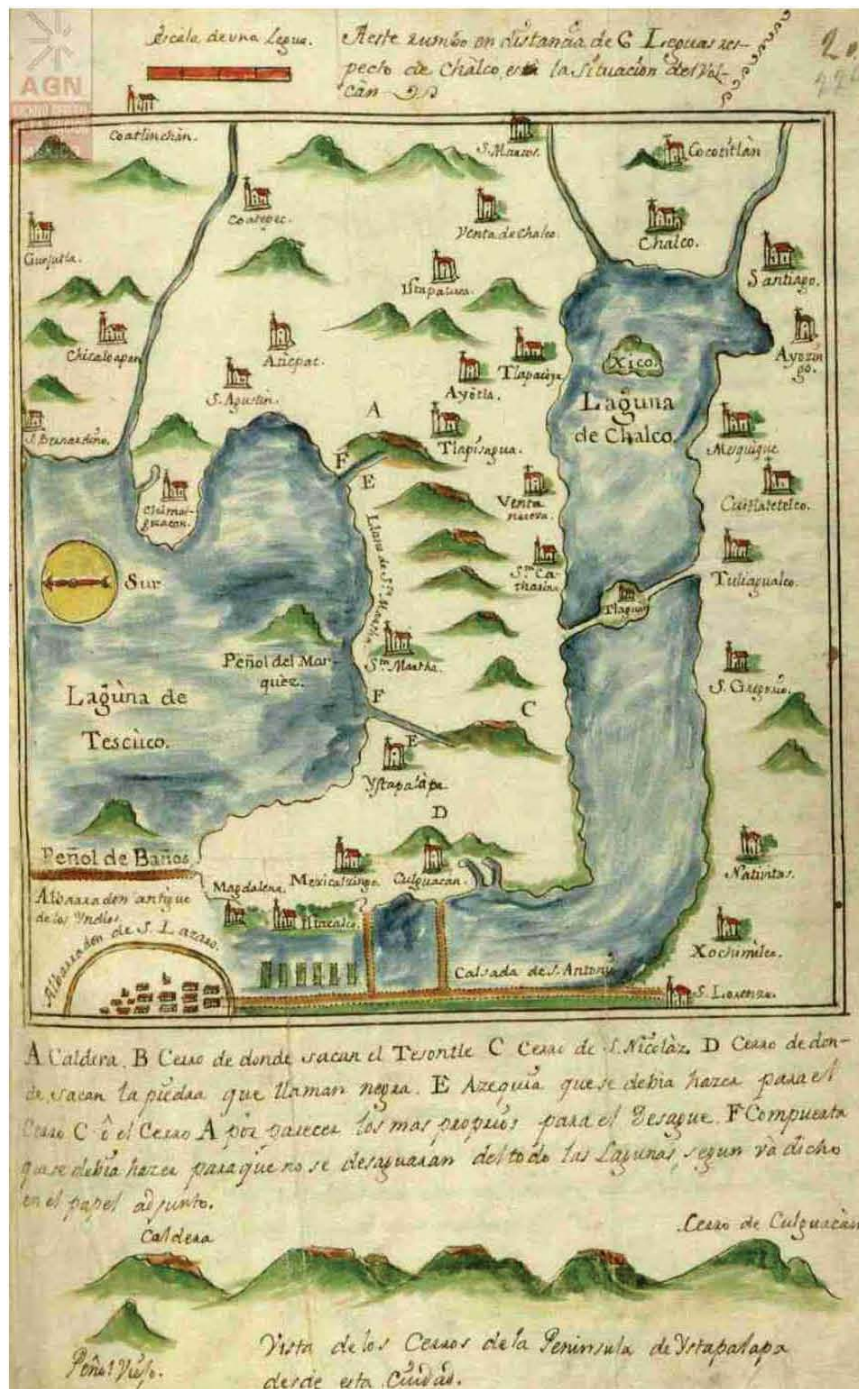 Escala de una Legua.
A este rumbo en distancia de 6 Leguas res-
pecto de Chalco, está la Situacion del Vol-
càn
AGN
Coatlinchàn.
S. Marcos.
Cocotitlàn
Coatepec.
Venta de Chalco.
Chalco.
Santiago.
Ayozin
go.
Chicaloapan
Aticpac.
Tlapacoya
Xico.
S. Agustin.
Ayotla.
Laguna
de Chalco.
A
S. Bernardino.
Tlapisagua.
Mesquique
F
E
Venta
nueva.
Cuitlatetelco.
Chimal-
guacan.
Llano de Sta. Martha
Sta. Ca-
tharina
Tuliagualco.
Sur
Tlaguac
Peñol del Mar-
quez.
Sta. Martha
S. Gregorio.
Laguna de
Tescùco.
F
C
E
Ystapalàpa
D
Peñol de Baños
Mexicalzingo.
Culguacàn.
Nativitas.
Albarradon antiguo
de los Yndios.
Magdalena.
Ytacalco.
Albarradon de S. Lazaro.
Xochimilco.
Calsada de S. Antonio
S. Lorenzo.
A Caldera. B Cerro de donde sacan el Tesontle C Cerro de S. Nicolàz. D Cerro de don-
de sacan la piedra que llaman negra. E Azequia que se debia hazer para el
Cerro C ô el Cerro A por parecer los mas proprios para el Desague. F Compuerta
que se debia hazer para que no se desaguaran del todo las Lagunas, segun và dicho
en el papel adjunto.
Caldera
Cerro de Culguacàn
Peñol Viejo.
Vista de los Cerros de la Peninsula de Ystapalapa
desde esta Ciudad.